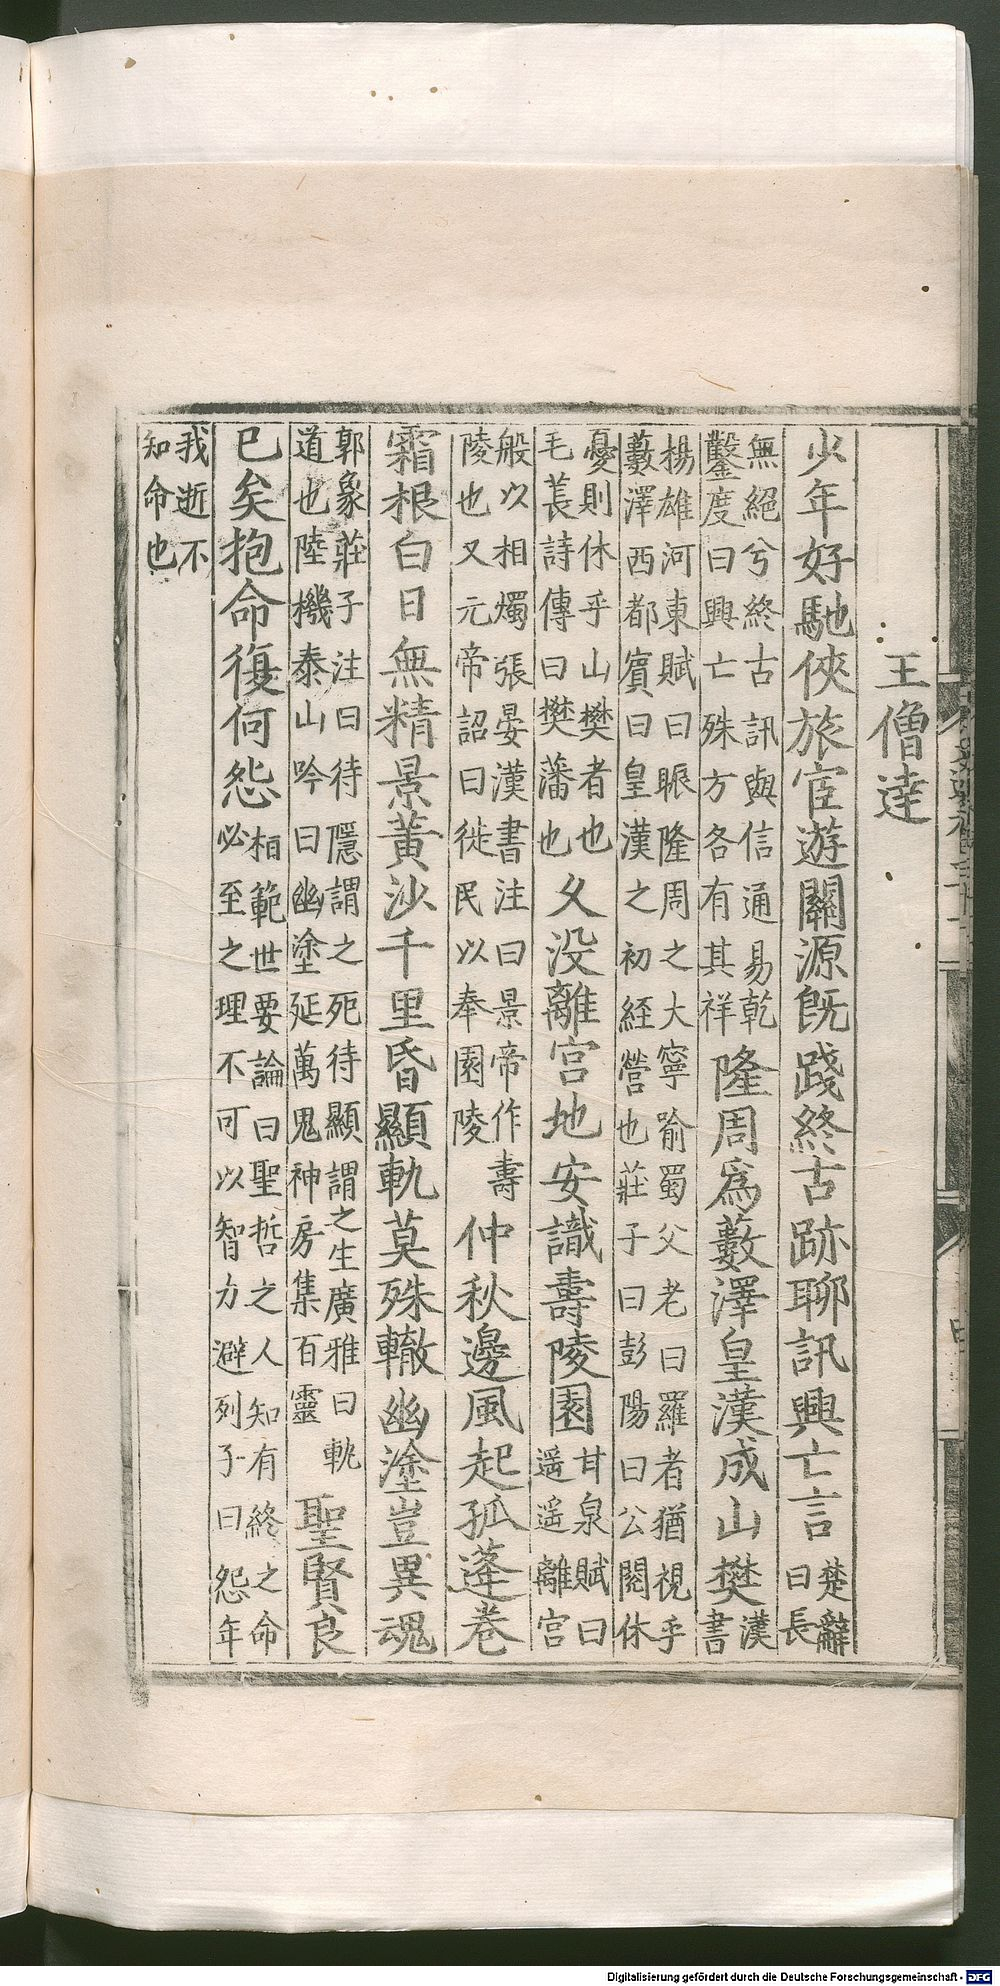 王僧達
少年好馳俠旅宦遊關源旣踐終古跡聊訊興亡言楚辭曰長
無絕兮終古訊與信通易乾鑿度曰興亡殊方各有其祥隆周爲藪澤皇漢成山樊漢書
楊雄河東賦曰脈隆周之大寧喻蜀父老曰羅者猶視乎藪澤西都賓曰皇漢之初經營也莊子曰彭陽曰公閱休
憂則休乎山樊者也毛萇詩傳曰樊藩也久没離宮地安識壽陵園甘泉賦曰遥遥離宮
般以相燭張晏漢書注曰景帝作壽陵也又元帝詔曰徙民以奉園陵仲秋邊風起孤蓬卷
霜根白日無精景黃沙千里昏顯軌莫殊轍幽塗豈異魂
郭象莊子注曰待隱謂之死待顯謂之生廣雅曰軌道也陸機泰山吟曰幽塗延萬鬼神房集百靈聖賢良
已矣抱命復何怨桓範世要論曰聖哲之人知有終之命必至之理不可以智力避列子曰怨年
我逝不知命也
Digitalisierung gefördert durch die Deutsche Forschungsgemeinschaft - DFG